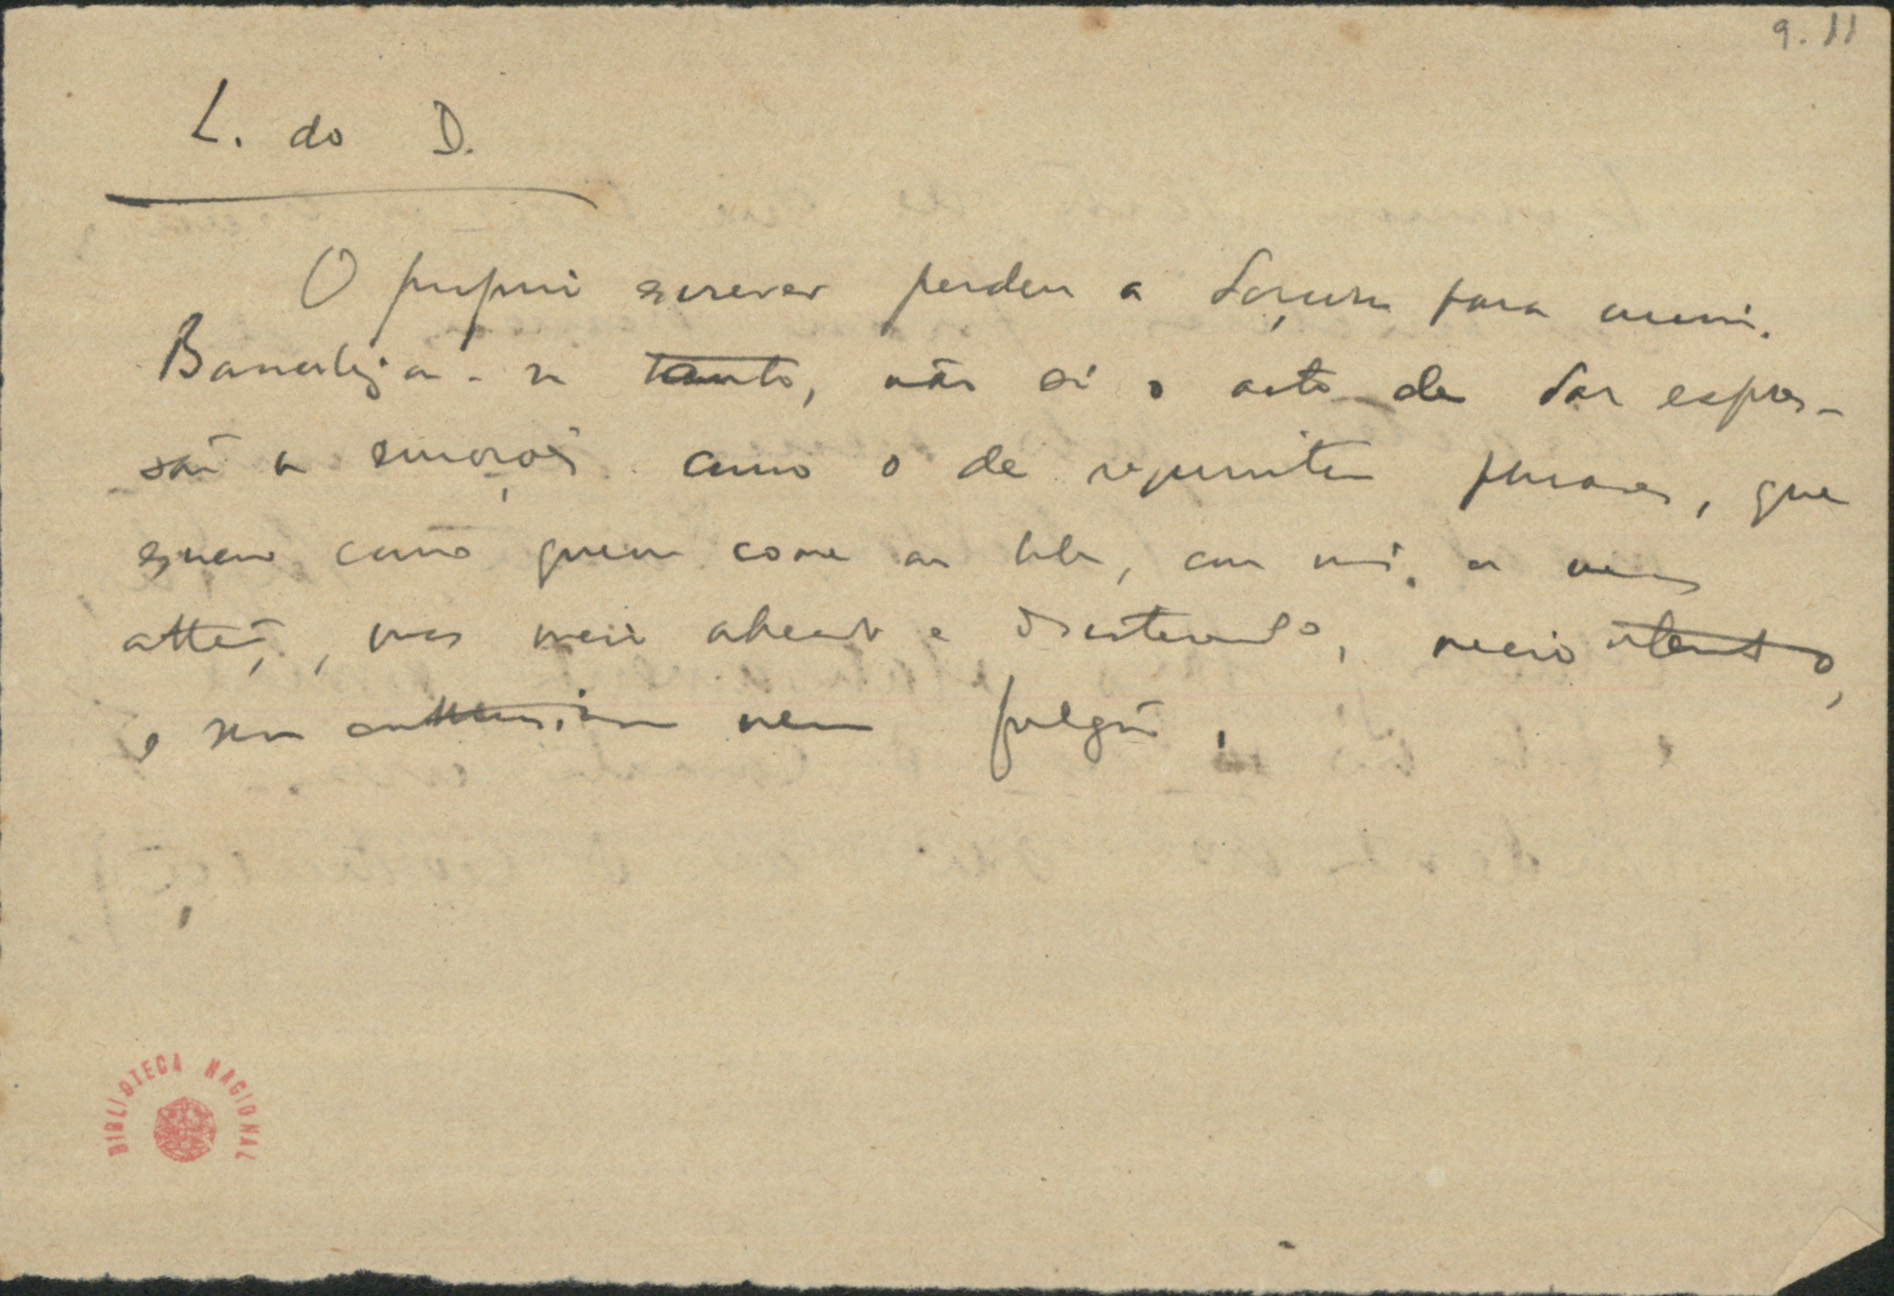 9. 11
L. do D.
O proprio escrever perdeu a doçura para mim.
Banalizou-se tanto, não só o acto de dar expres-
são a emoções como o de requintar phrases, que
escrevo como quem come ou bebe, com mais ou menos
attenção, mas meio alheado e desinteressado, meio attento,
e sem enthusiasmo nem fulgor.
BIBLIOTECA NACIONAL